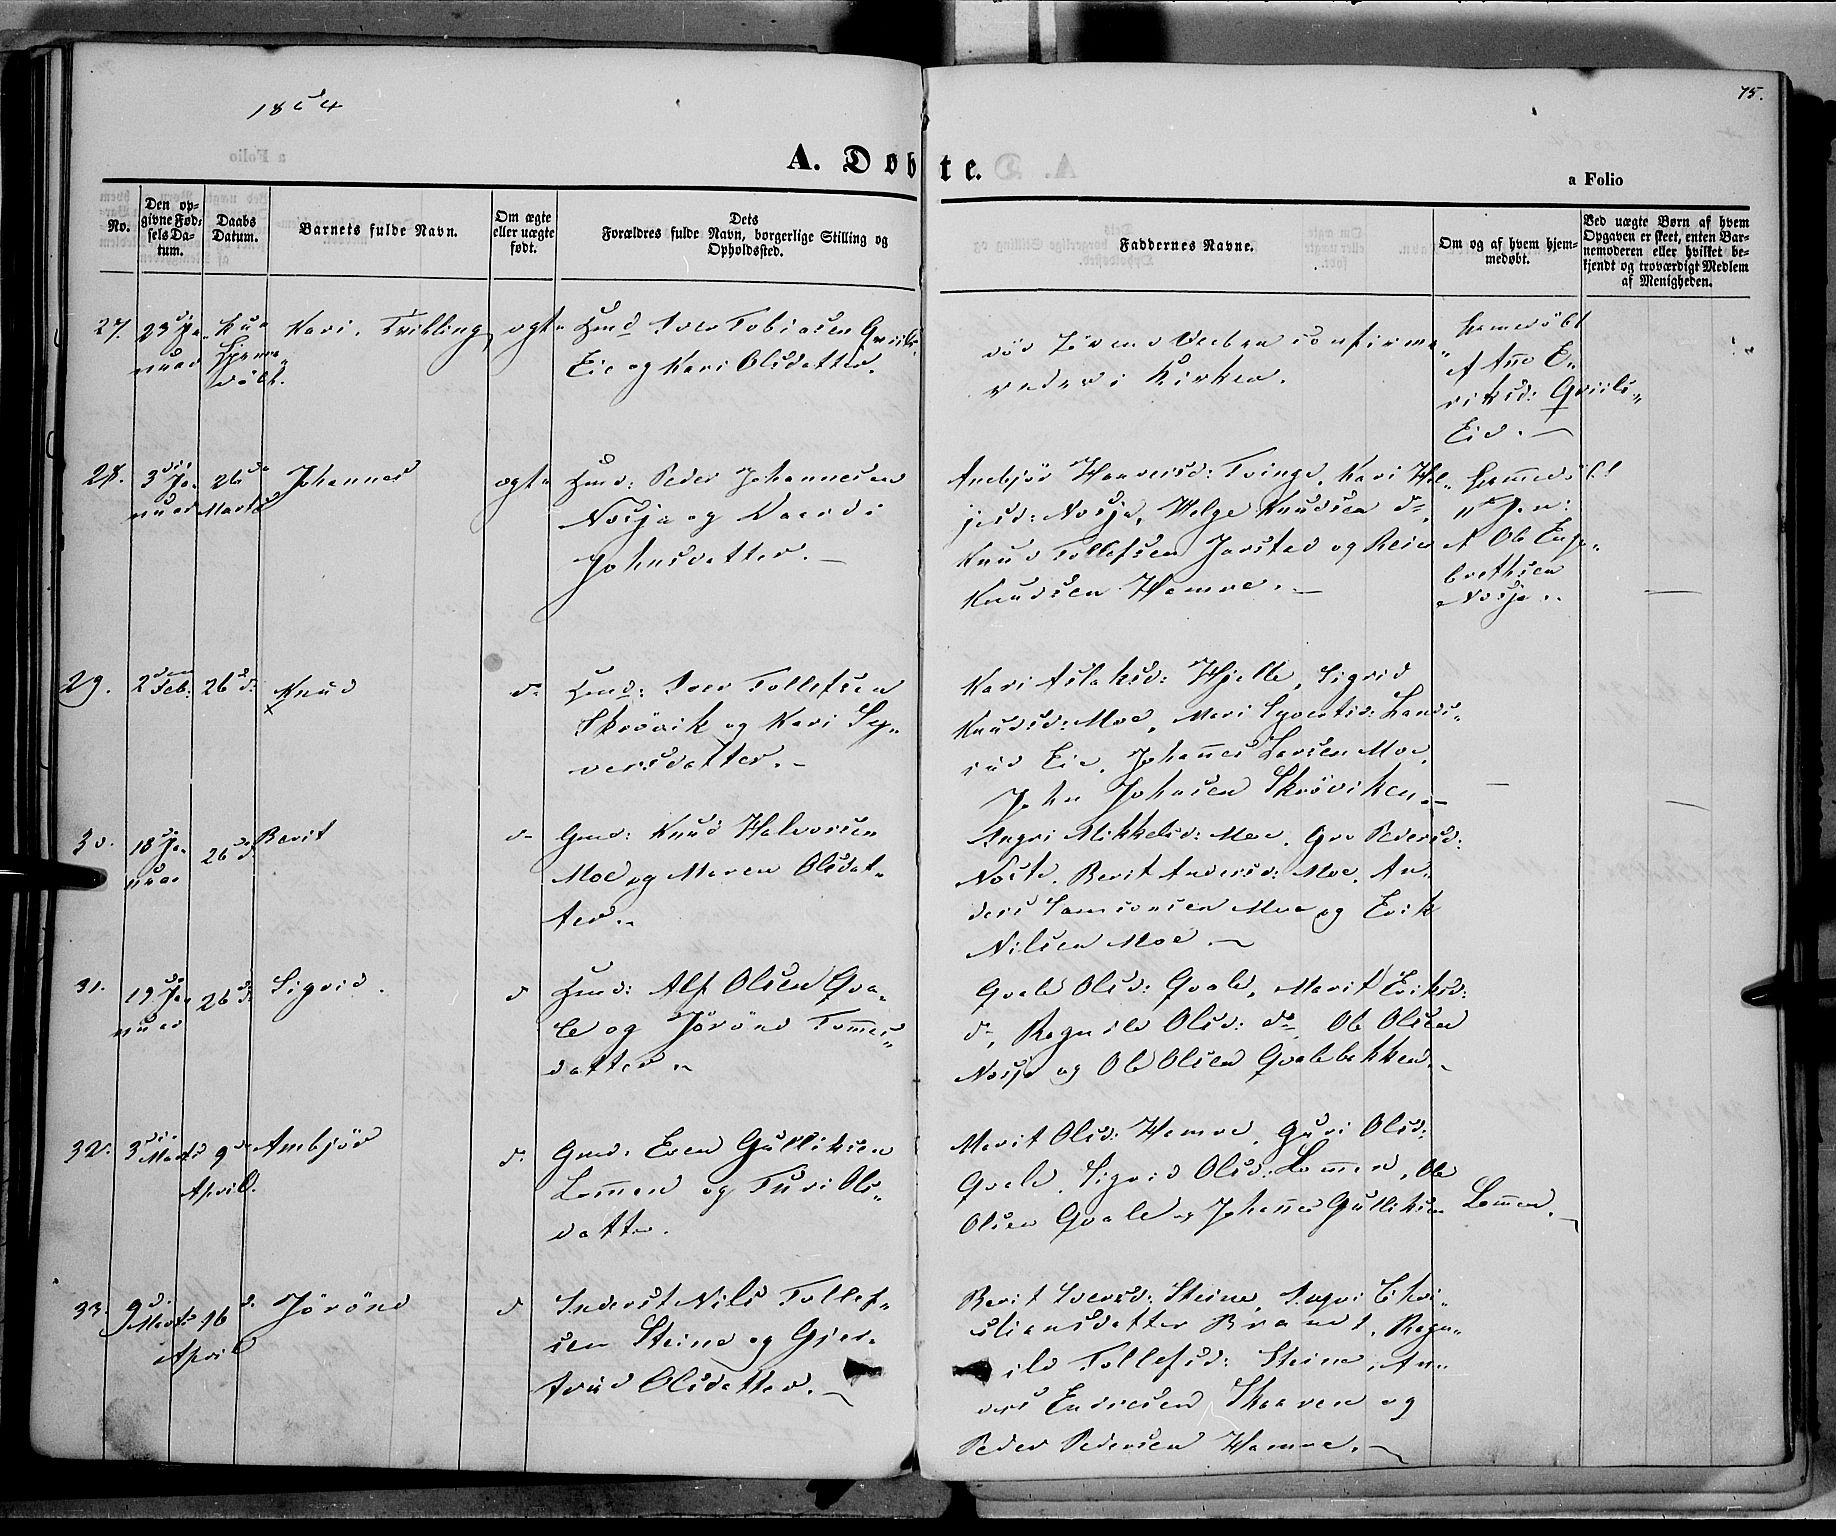 1854
75.
A. Døbte.
a Folio
No.
Den op-
givne Fød-
sels Da-
tum.
Daabs
Datum.
Barnets fulde Navn.
Om ægte
eller uægte
født.
Dets
Forældres fulde Navn, borgerlige Stilling og
Opholdssted.
Faddernes Navne.
Om og af hvem hjem-
medøbt.
Ved uægte Børn af hvem
Opgaven er skeet, enten Bar-
nemoderen eller hvilket be-
kjendt og troværdigt Medlem
af Menigheden.
27. 23 Ja-
nuar
Kun
hjemme
døbt.
Kari. Tvilling
ægte
Hmd Iver Tobiasen Qviils
Eie og Kari Olsdatter.
død
i Kirken.
hjemedøbt
af Anne E-
riksd: Qviils-
Eie. —
28. 3 Ja-
nuar
26
Marts
Johannes
ægte
Hmd: Peder Johannesen
Nosja og
Johnsdatter. —
Anebjør Haavelsd: Tvinge, Kari Hel-
jesd: Nosja, Helge Knudsen do,
Knud Tollefsen Jarstad og
Knudsen Hamre. —
hjemedøbt
Jan:
af Ole Enge-
brethsen
Nosja.
29. 2den Feb: 26 d: Knud
do Hmd: Iver Tollefsen
Skrøvik og Kari Sy-
versdatter. —
Kari Aslaksd: Hjelle, Sigrid
Knudsd: Moe, Mari Syvertsd: Lands-
rud Eie, Johannes Larsen Moe,
John Johnsen Skrøviken —
30. 18 Ja-
nuar
26 d. Berit
do Gmd: Knud Halvorsen
Moe og Maren Olsdat-
ter.
Ingri Mikkelsd: Moe, Gro Pedersd:
Noste, Berit Andersd: Moe, An-
ders Samsonsen Moe og Erik
Nilsen Moe. —
31. 19 Ja-
nuar
26 d. Sigrid.
do Hmd: Alf Olsen Qva-
le og Jørønd Tomes-
datter.
Qvale Olsd: Qvale, Marit Eriksd:
do, Ragnild Olsd: do Ole Olsen
Nosja og Ole Olsen Qvalebakken. —
32. 3 Marts 9 de
April.
Ambjør
do Gmd. Even Gulliksen
Lomen og Turi Ols-
datter.
Marit Olsd: Hamre, Guri Olsd:
Qvale, Sigrid Olsd: Lomen, Ole
Olsen Qvale og Johannes Gulliksen Lomen. —
33. 9 Marts 16
April
Jørønd
do Inderst Nils Tollef-
sen Steine og Gjer-
trud Olsdatter. —
Berit Iversd: Steine, Ingri Chri-
stiansdatter Brandt, Ragn-
ild Tollefsd: Steine, An-
ders Endresen Skaaren og
Peder Pedersen Hamre. —